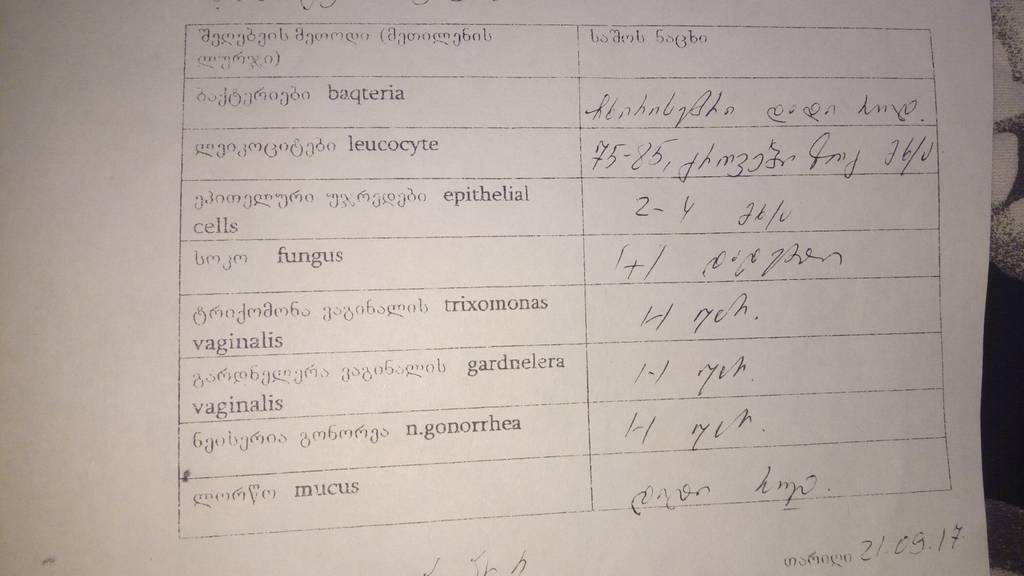 შეღებვის მეთოდი (მეთილენის
ლურჯი)
საშოს ნაცხი
ბაქტერიები baqteria
ჩხირისებრი დიდი რაოდ.
ლეიკოციტები leucocyte
75-85, მხ/ა
ეპითელური უჯრედები epithelial
cells
2-4 მხ/ა
სოკო fungus
(+) დადებითი
ტრიქომონა ვაგინალის trixomonas
vaginalis
(-) უარ.
გარდნელერა ვაგინალის gardnelera
vaginalis
(-) უარ.
ნეისერია გონორეა n.gonorrhea
(-) უარ.
ლორწო mucus
დიდი რაოდ.
თარიღი 21.09.17